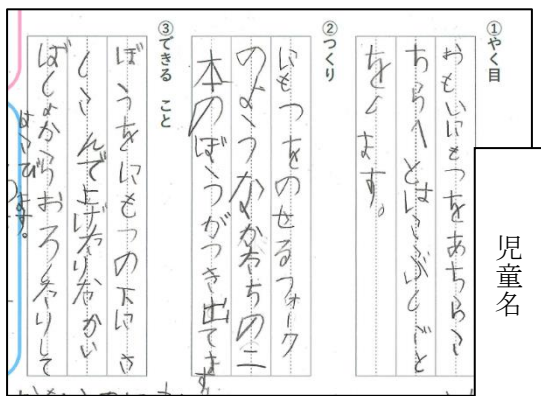 ①やく目
おもいにもつをあちらこ
ちらへとはこぶしごと
をします。
②つくり
にもつをのせるフォーク
のようなかたちの二
本のぼうがつき出てます。
③できる こと
ぼうをにもつの下にさ
しこんで上げたりたかい
ばしょからおろしたりして
はこびます。
児童名